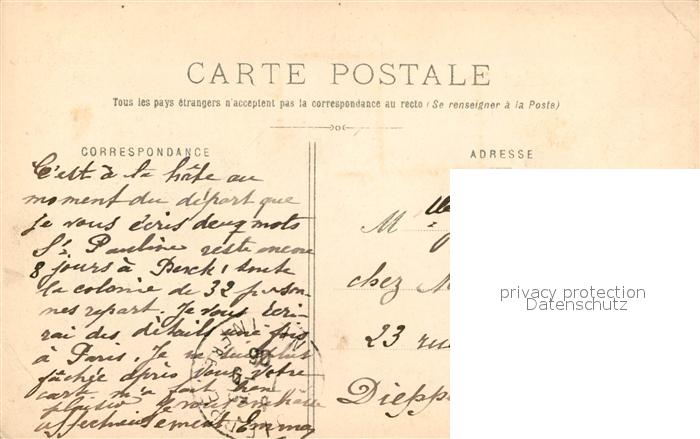 CARTE POSTALE
Tous les pays étrangers n'acceptent pas la correspondance au recto (Se renseigner à la Poste)
CORRESPONDANCE
C'est à la hâte au
moment du départ que
je vous écris deux mots
St Pauline reste encore
8 jours à Berck, toute
la colonie de 32 person-
nes repart. Je vous écri-
rai des détails une fois
à Paris. Je ne suis plus
fâchée après vous votre
carte m'a fait bien
plaisir je vous embrasse
affectueusement Emma
ADRESSE
M lle
chez M
23 rue
Diepp
privacy protection
Datenschutz